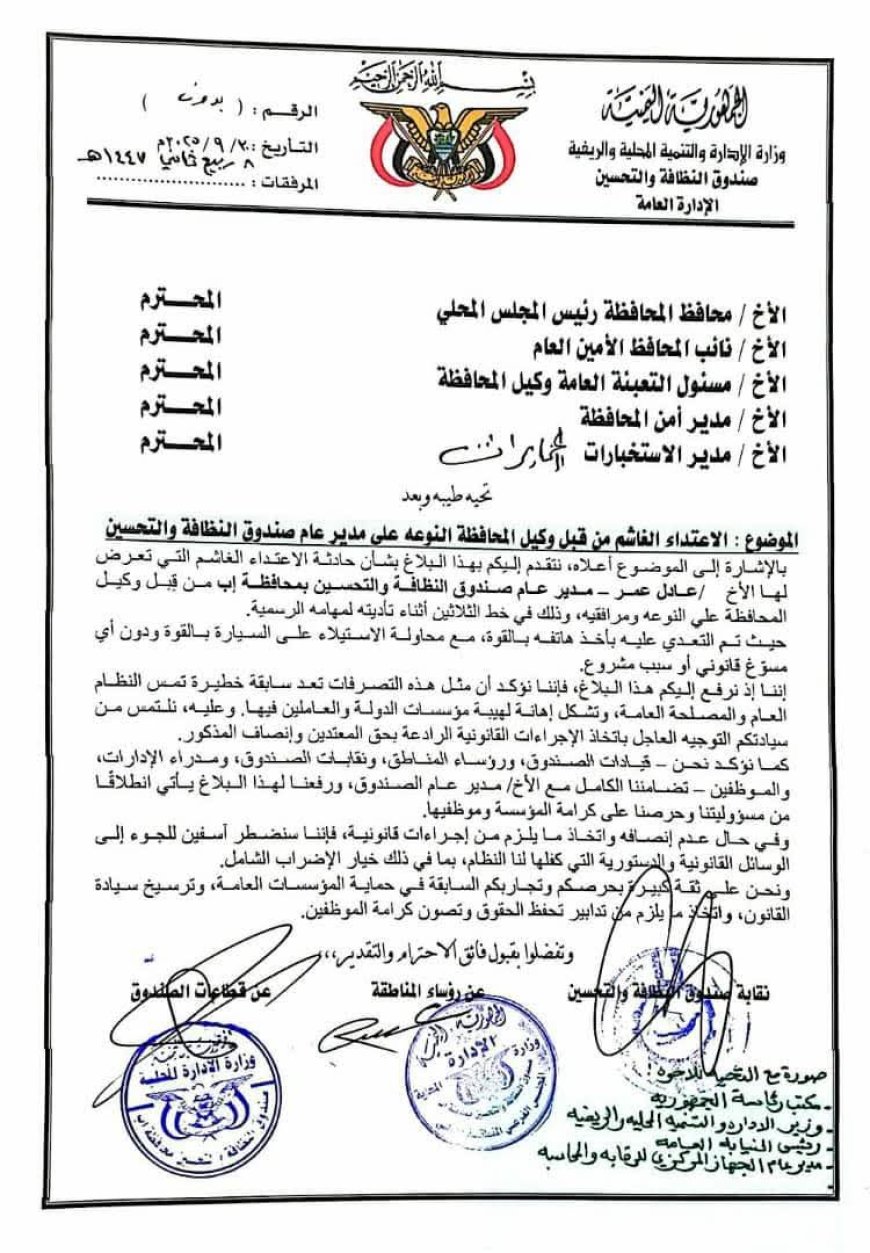 بسم الله الرحمن الرحيم
الجمهورية اليمنية
وزارة الإدارة والتنمية المحلية والريفية
صندوق النظافة والتحسين
الإدارة العامة
الرقم : ( بدون )
التاريخ : ٣٠/ ٩ /٢٠٢٥م
٨ ربيع ثاني ١٤٤٧هـ
المرفقات : ........................
الأخ / محافظ المحافظة رئيس المجلس المحلي المحترم
الأخ / نائب المحافظ الأمين العام المحترم
الأخ / مسئول التعبئة العامة وكيل المحافظة المحترم
الأخ / مدير أمن المحافظة المحترم
الأخ / مدير الاستخبارات المخابرات المحترم
تحيه طيبه وبعد
الموضوع : الاعتداء الغاشم من قبل وكيل المحافظة النوعه على مدير عام صندوق النظافة والتحسين
بالإشارة إلى الموضوع أعلاه، نتقدم إليكم بهذا البلاغ بشأن حادثة الاعتداء الغاشم التي تعرض
لها الأخ /عادل عمر – مدير عام صندوق النظافة والتحسين بمحافظة إب من قِبل وكيل
المحافظة علي النوعه ومرافقيه، وذلك في خط الثلاثين أثناء تأديته لمهامه الرسمية.
حيث تم التعدي عليه بأخذ هاتفه بالقوة، مع محاولة الاستيلاء على السيارة بالقوة ودون أي
مسوّغ قانوني أو سبب مشروع.
إننا إذ نرفع إليكم هذا البلاغ، فإننا نؤكد أن مثل هذه التصرفات تعد سابقة خطيرة تمس النظام
العام والمصلحة العامة، وتشكل إهانة لهيبة مؤسسات الدولة والعاملين فيها. وعليه، نلتمس من
سيادتكم التوجيه العاجل باتخاذ الإجراءات القانونية الرادعة بحق المعتدين وإنصاف المذكور.
كما نؤكد نحن – قيادات الصندوق، ورؤساء المناطق، ونقابات الصندوق، ومدراء الإدارات،
والموظفين – تضامننا الكامل مع الأخ/ مدير عام الصندوق، ورفعنا لهذا البلاغ يأتي انطلاقًا
من مسؤوليتنا وحرصنا على كرامة المؤسسة وموظفيها.
وفي حال عدم إنصافه واتخاذ ما يلزم من إجراءات قانونية، فإننا سنضطر آسفين للجوء إلى
الوسائل القانونية والدستورية التي كفلها لنا النظام، بما في ذلك خيار الإضراب الشامل.
ونحن على ثقة كبيرة بحرصكم وتجاربكم السابقة في حماية المؤسسات العامة، وترسيخ سيادة
القانون، واتخاذ ما يلزم من تدابير تحفظ الحقوق وتصون كرامة الموظفين.
وتفضلوا بقبول فائق الاحترام والتقدير،،،
نقابة صندوق النظافة والتحسين
عن رؤساء المناطقة
عن قطاعات الصندوق
وزارة الإدارة المحلية
صورة مع التحيه للاخوه
- مكتب رئاسة الجمهورية
- وزير الاداره والتنميه المحليه والريفيه
- رئيس النيابه العامه
- مدير عام الجهاز المركزي للرقابه والمحاسبه